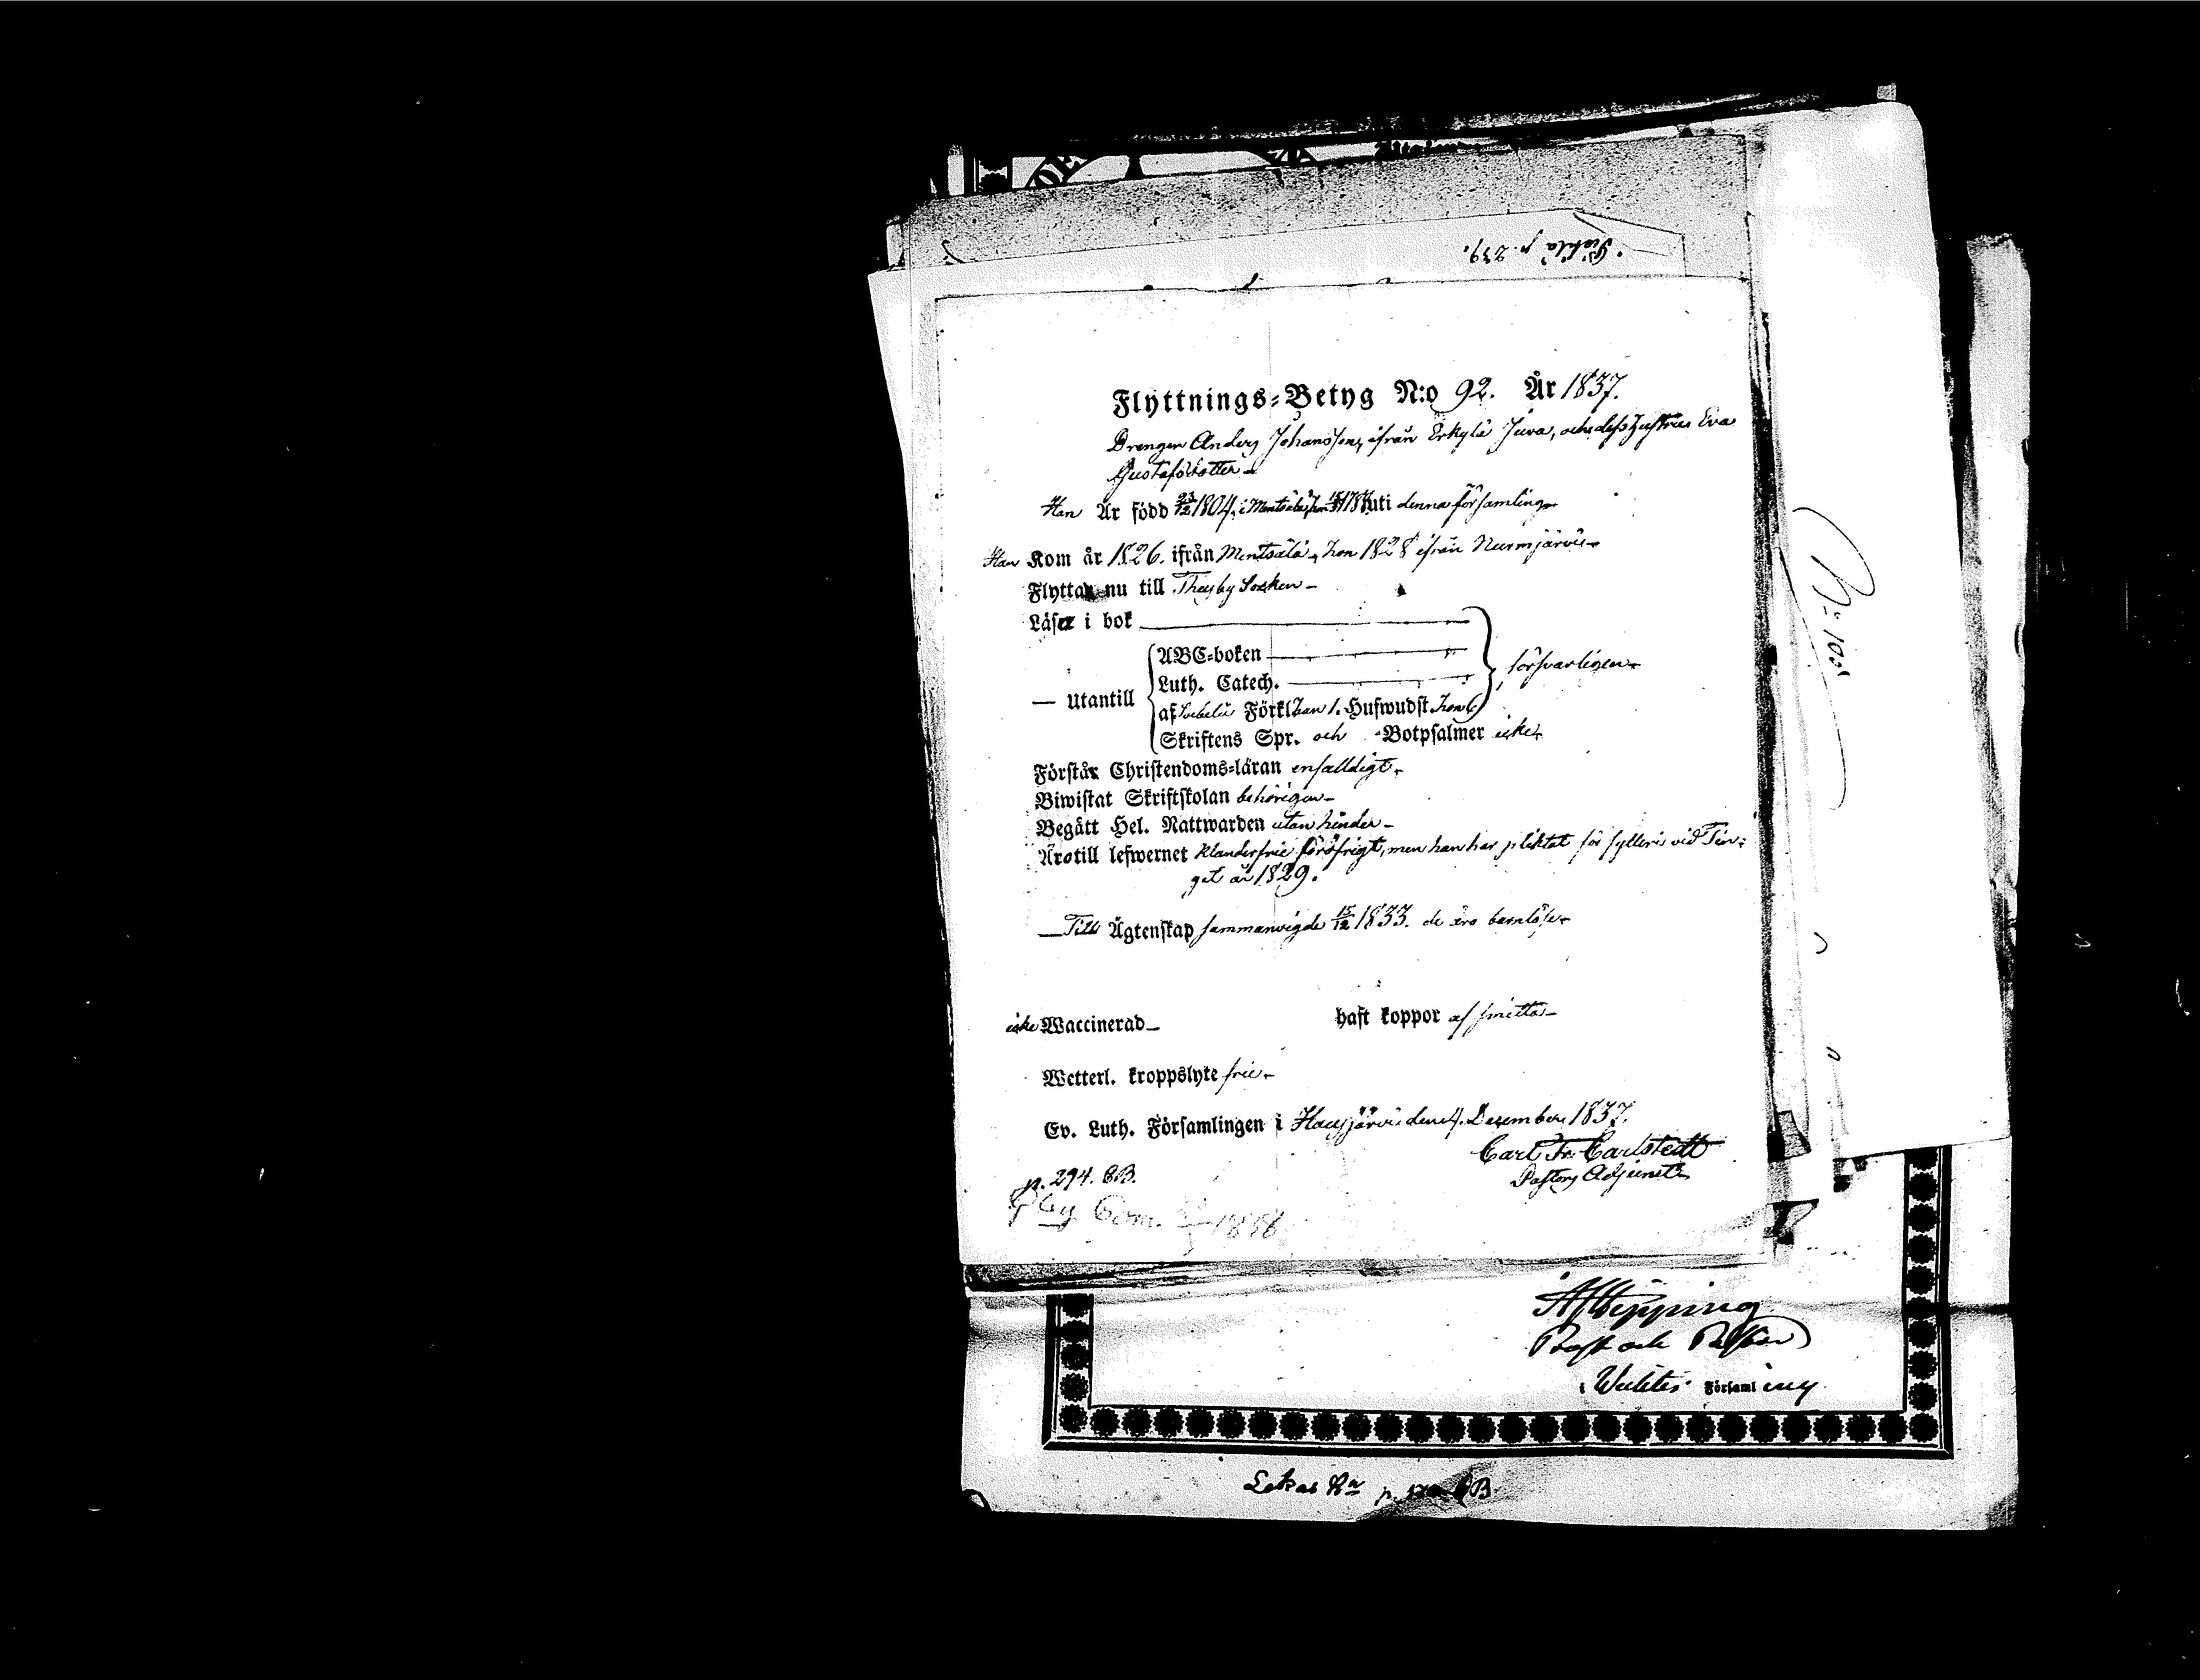 Pickla p. 239.
Flyttnings-Betyg N:o 92. År 1837.
Drengen Anders Johansson, ifrån Erkylä Juva, och dess hustru Eva
Gustafsdotter
Han Är född 23/12 1804, i Mentsälä, hon uti denna församling
Han Kom år 1826. ifrån Mentsälä, hon 1828 ifrån Nurmijärvi
Flyttar nu till Thusby Socken
Läsa i bok
ABC-boken
Luth. Catech.
försvarligen
— Utantill
af Förkl. han 1. Hufwudst. hon 6
Skriftens Spr. och Botpsalmer icke
Förstår Christendoms-läran enfalldigt
Biwistat Skriftskolan behörigen
Begått Hel. Nattwarden utan hinder
Äro till lefwernet klanderfrie föröfrigt, men han har pliktat för fylleri vid Tin-
get år 1829.
Till Ägtenskap sammanvigde 15/12 1833. de äro barnlöse
icke Waccinerad haft koppor af smitta
Wetterl. kroppslyte frie
Ev. Luth. Församlingen i Hausjärvi den 4. December 1837.
Carl Fr. Carlstedt
Pastors Adjunct
p. 294. CB.
Com. 1838
N: 103
Hipping
Prost och Pastor
i Wichtis Församling
p. CB